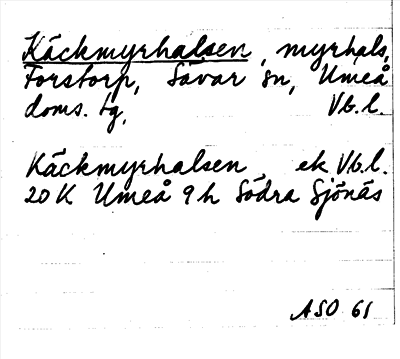 Käckmyrhalsen, myrhals,
Forstorp, Sävar sn, Umeå
doms. tg, Vb.l.
Käckmyrhalsen ek. Vb.l.
20 K Umeå 9 h Södra Sjönäs
ASO 61